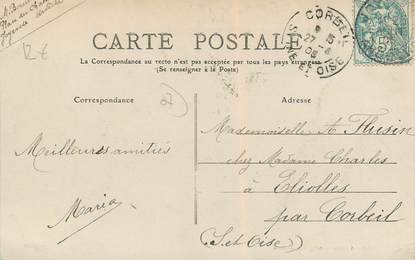 12€
CARTE POSTALE
La Correspondance au recto n'est pas acceptée par tous les pays étrangers
(Se renseigner à la Poste)
CORBEIL
SEINE ET OISE
Correspondance
27
Adresse
Meilleures amitiés
Maria
Mademoiselle A. Flusin
chez Madame Charles
à Etiolles
par Corbeil
(S. et Oise)